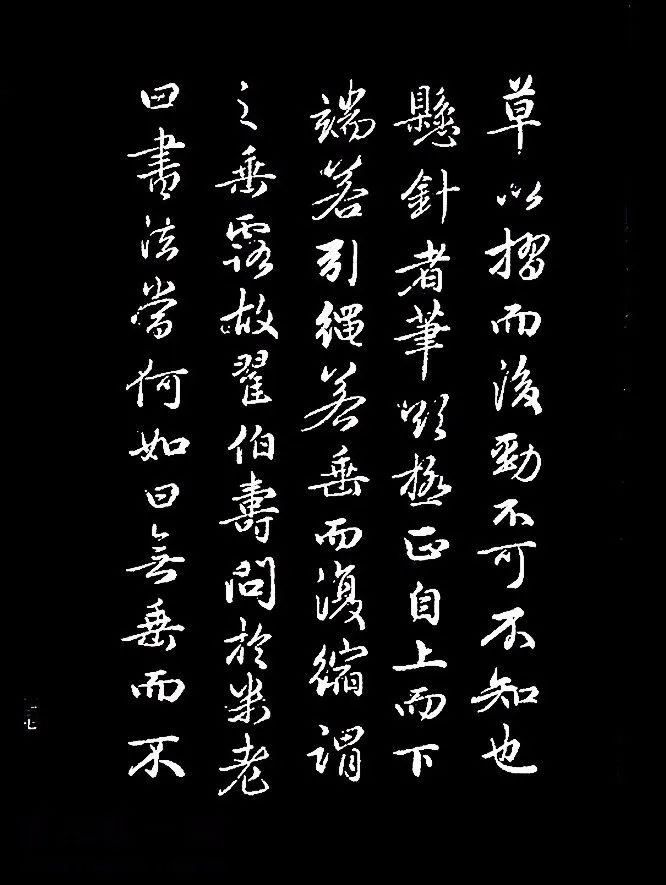 草以摺而後勁不可不知也
懸針者筆欲極正自上而下
端若引繩若垂而復縮謂
之垂露故翟伯壽問於米老
曰書法當何如曰無垂而不